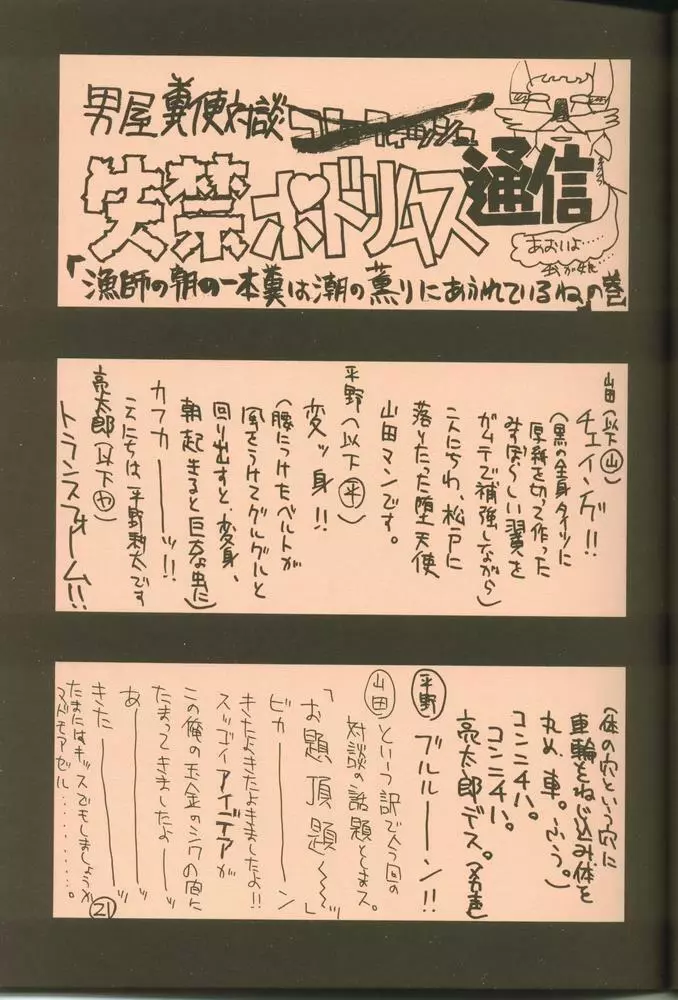 男屋糞便対談
失禁ボドムリス通信
あおいよ……
我が娘……
「漁師の朝の一本糞は潮の薫りにあふれているね」の巻
山田(以下山)
チェインヂ!!
(黒の全身タイツに
厚紙を切って作った
みすぼらしい翼を
ガムテで補強しながら)
こんにちわ、松戸に
落りたった堕天使
山田マンです。
平野(以下平)
変ッ身!!
(腰につけたベルトが
風をうけてグルグルと
回り出すと、変身、
朝起きると巨大な虫に)
カフカーーッ!!
こんにちは、平野耕太です
亮太郎(以下や)
トランスフォーム!!
(体の穴という穴に
車輪をねじ込み体を
丸め、車。ふう。)
コンニチハ。
コンニチハ。
亮太郎デス。(裏声)
平野 ブルルーーン!!
山田 という訳で今回の
対談の話題としまス。
「お題頂題〜〜〜」
ピカーーーーン
きたよきたよきましたよ!!
スッゴイアイデアが
この俺の玉金のシワの間に
たまってきましたよーーッ
あーーーーッ
きたーーーーッ
たまにはキッスでもしましょうか
マドモアゼル…………。
21